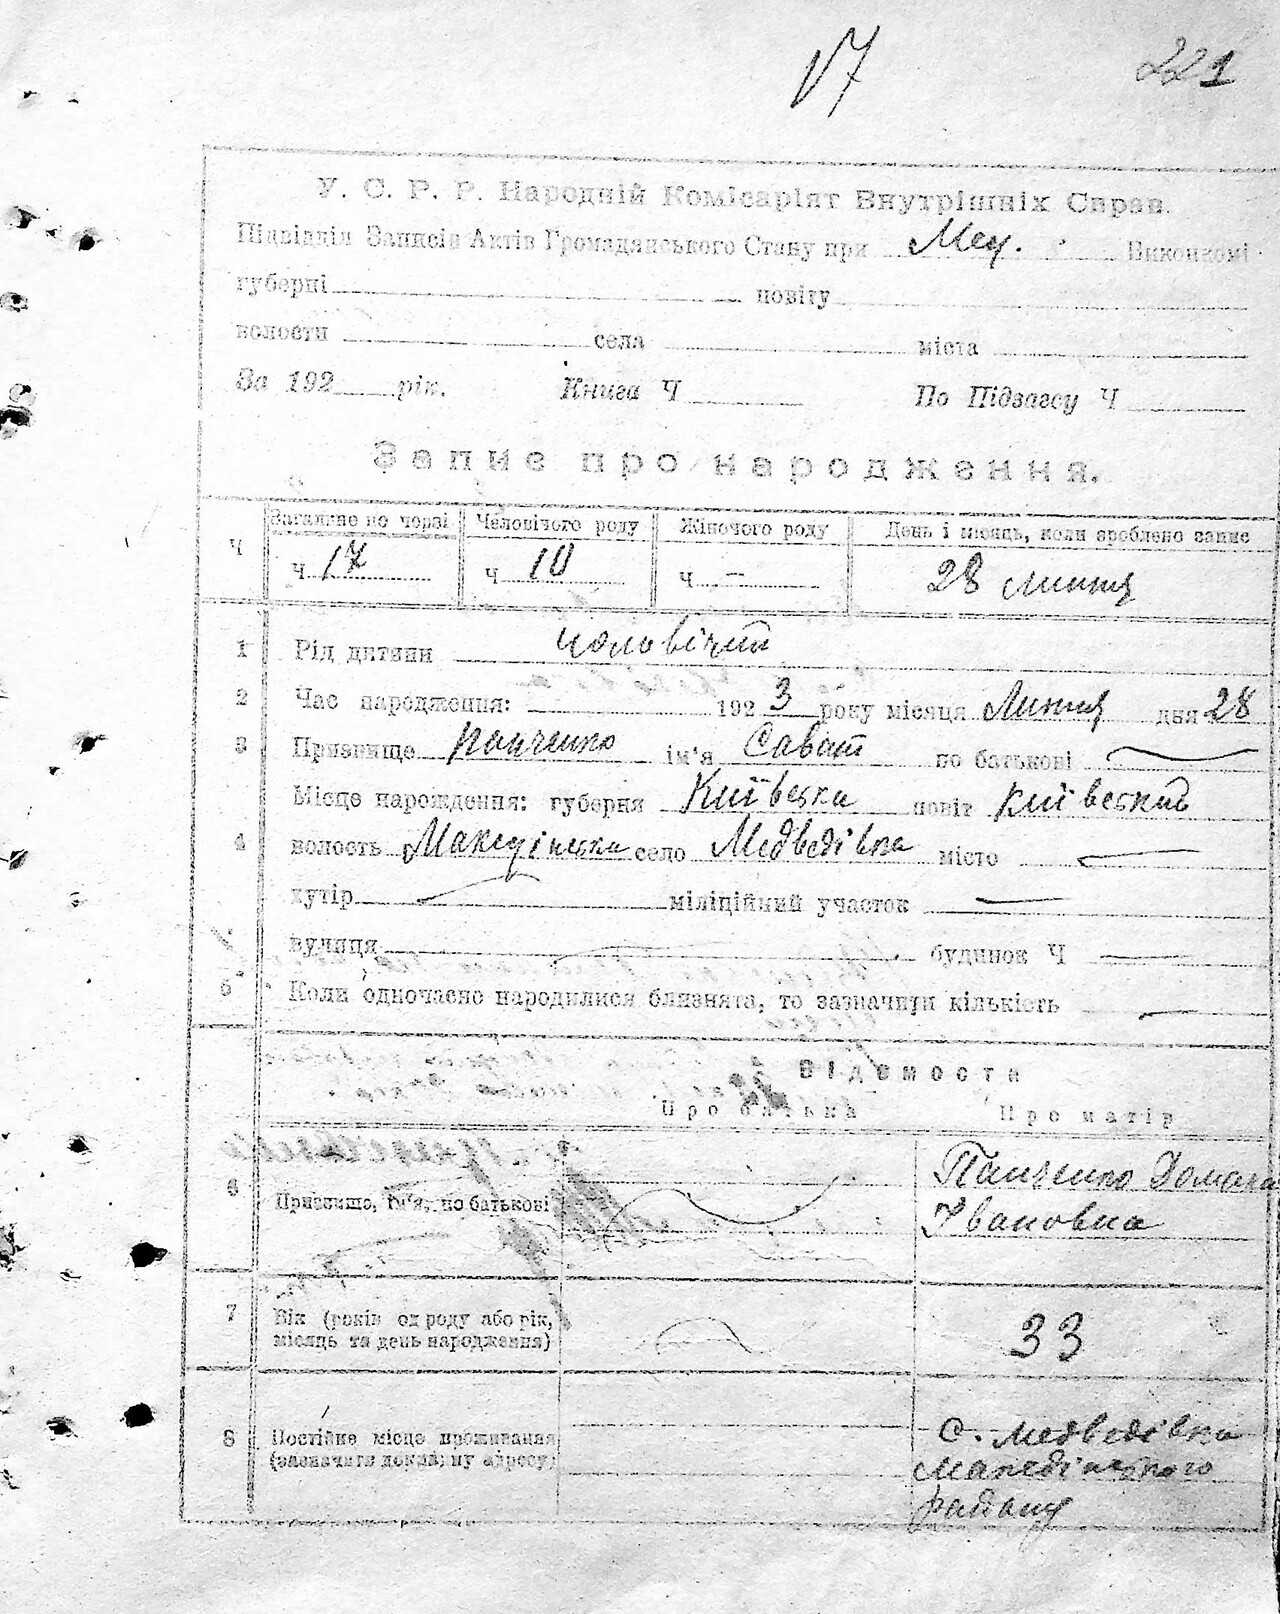 17 221
У. С. Р. Р. Народній Комісаріят Внутрішніх Справ.
Підвідділ Записів Актів Громадянського Стану при Мед. Виконкомі
губерні повіту
волости села міста
За 192 рік. Книга Ч По Підзагсу Ч
Запис про народження.
Загальне по черзі Человічого роду Жіночого роду День і місяць, коли зроблено запис
Ч Ч 17 Ч 10 Ч – 28 липня
1 Рід дитини чоловічий
2 Час народження: 1923 року місяця Липня дня 28
3 Призвище Панченко ім'я Сават по батькові —
Місце народження: губерня Київська повіт Київський
4 волость село Медведівка місто —
хутір — міліційний участок —
вулиця — будинок Ч —
5 Коли одночасно народилися близнята, то зазначити кількість —
Відомости
Про батька Про матір
6 Призвище, ім'я, по батькові Панченко Домаха
Івановна
7 Вік (років од роду або рік, 33
місяць та день народження)
8 Постійне місце проживання С. Медведівка
(зазначити докладну адресу)
району